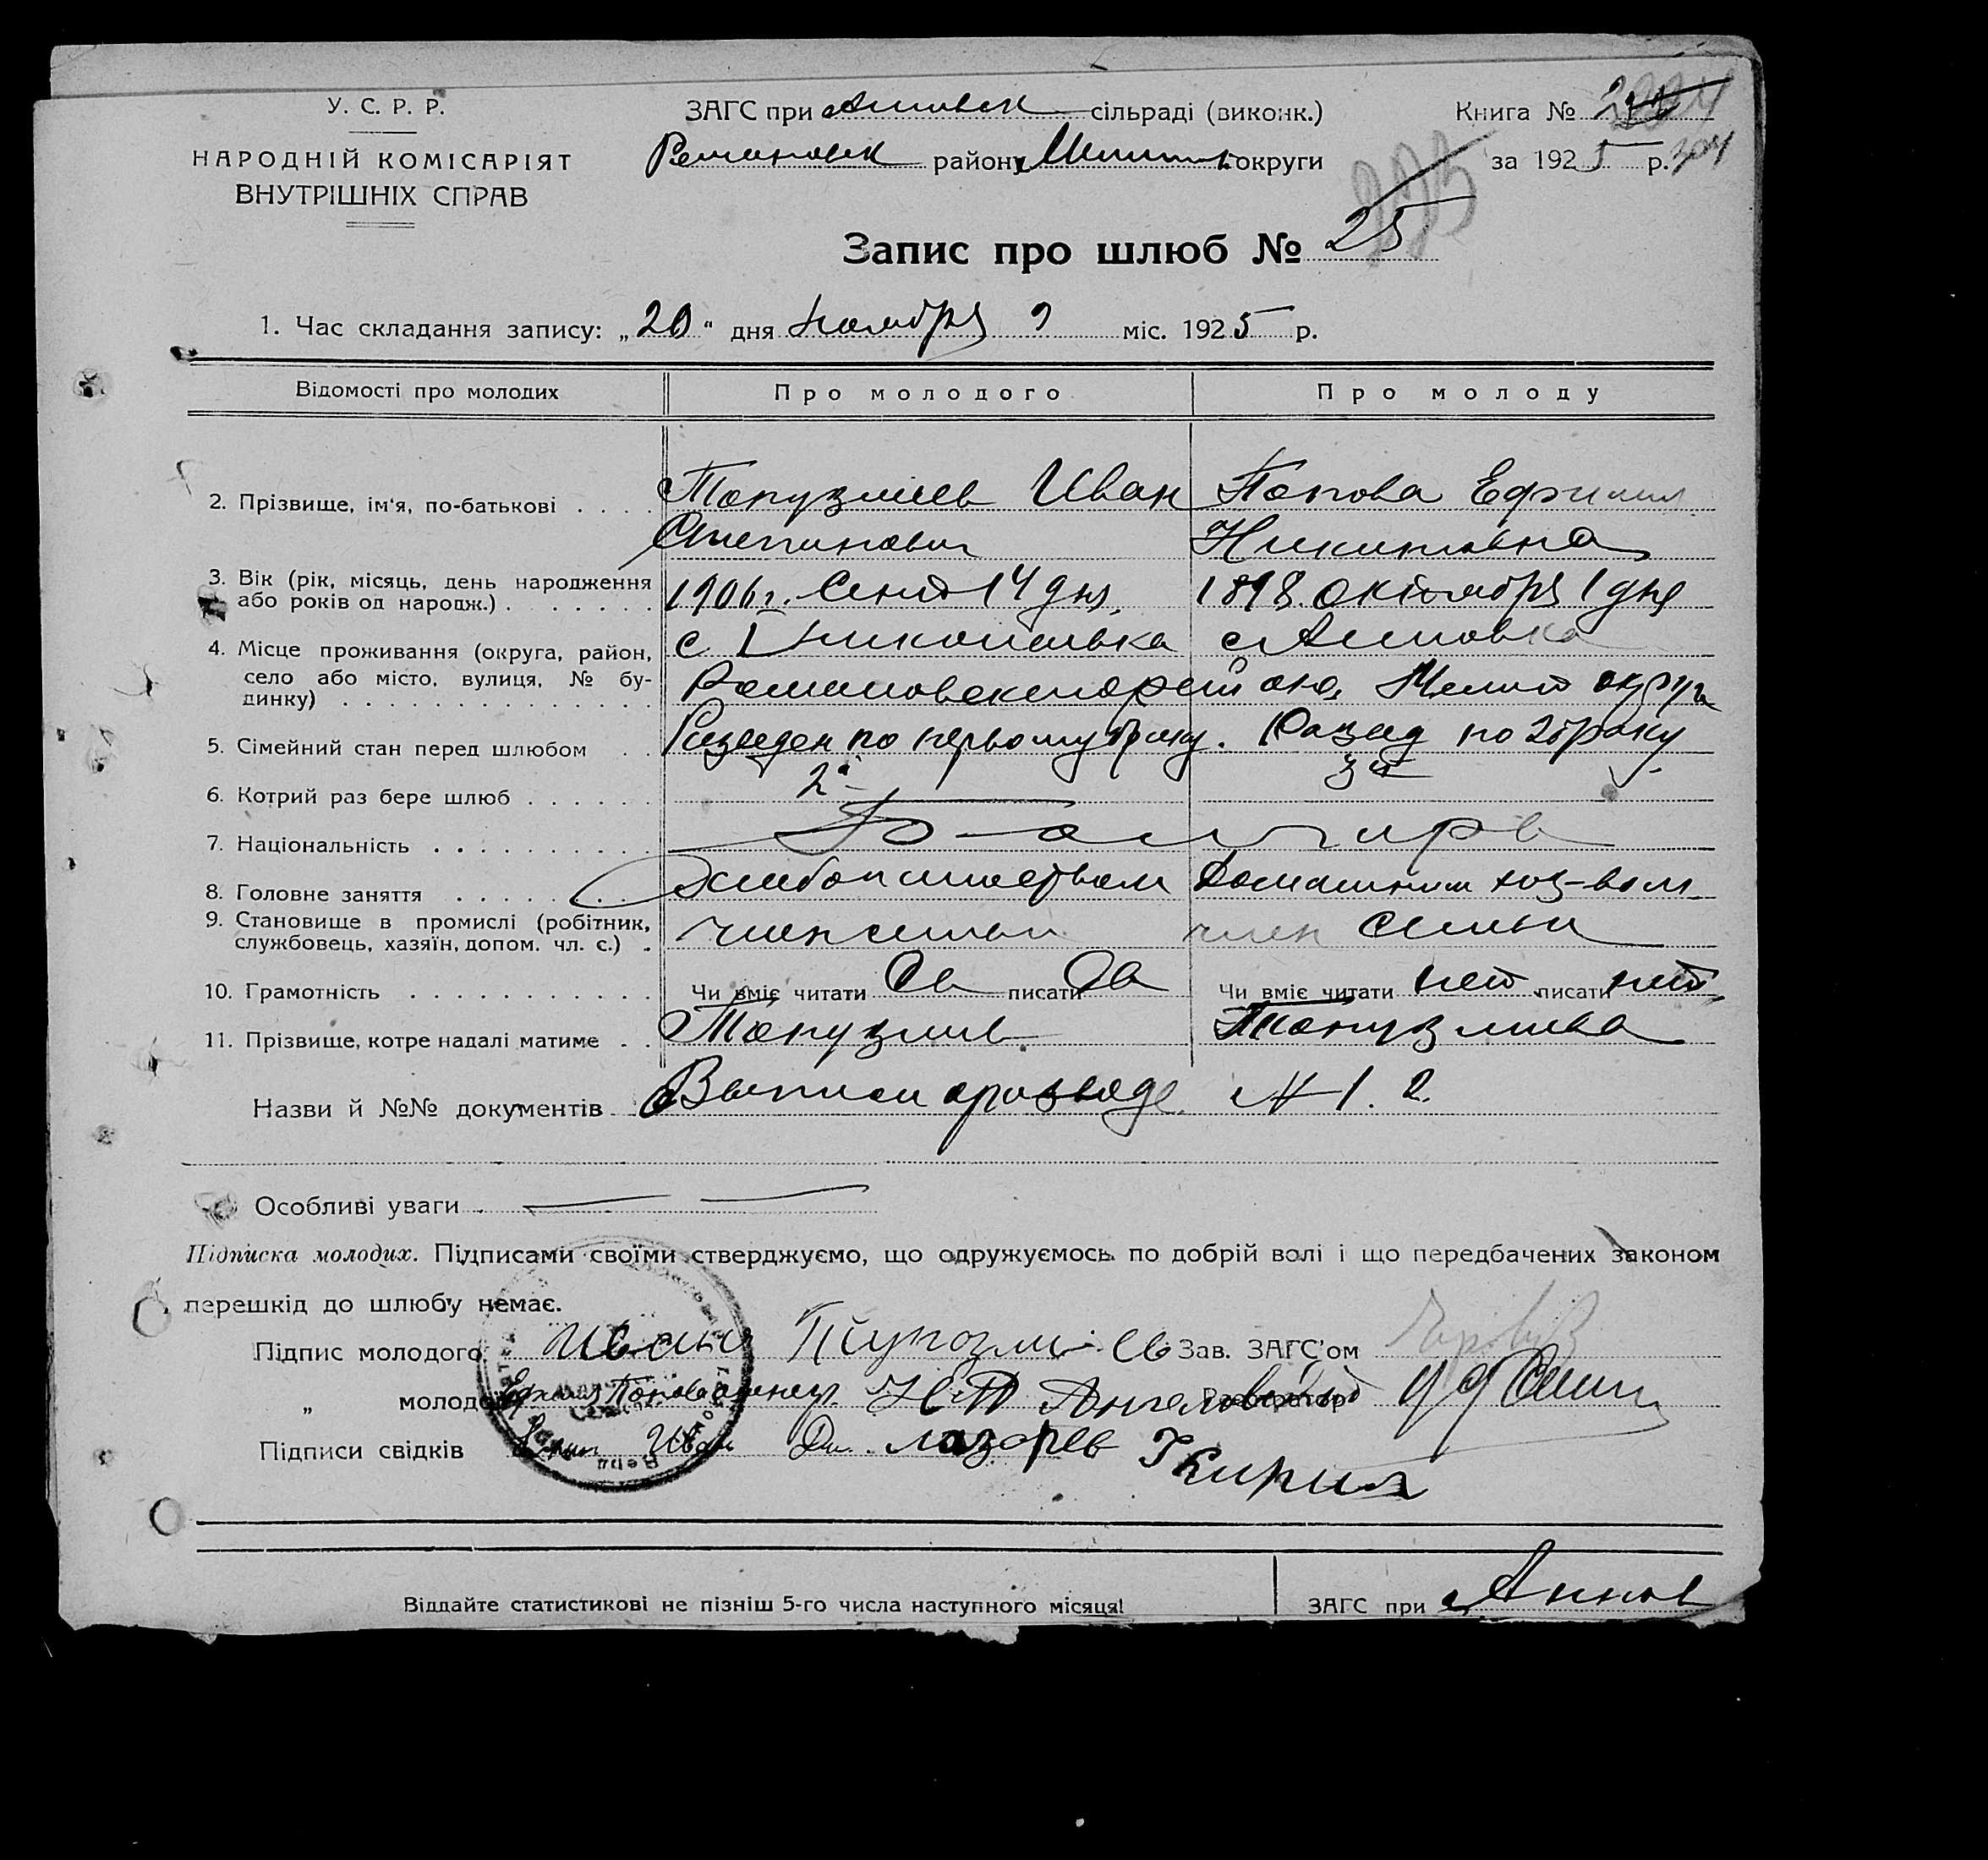 У. С. Р. Р.
НАРОДНІЙ КОМІСАРІЯТ
ВНУТРІШНІХ СПРАВ
ЗАГС при Анновск сільраді (виконк.)
Романовск району Мелит округи
Книга №
за 1925 р. 304
Запис про шлюб № 25
1. Час складання запису: „20“ дня ноября міс. 1925 р.
Відомості про молодих Про молодого Про молоду
2. Прізвище, ім'я, по-батькові Топузлиев Иван Попова Ефимия
Степанович Никитовна
3. Вік (рік, місяць, день народження
або років од народж.) 1906 г. Сент 14 дня, 1898 октября 1 дня
4. Місце проживання (округа, район,
село або місто, вулиця, № бу-
динку)
с. Николаевка с Анновка
Романовского района Мелит округи
5. Сімейний стан перед шлюбом Разведен по первому браку. Развед по 2 браку
6. Котрий раз бере шлюб 2й 3й
7. Національність Болгаре
8. Головне заняття Хлебопашеством Домашним хоз-вом
9. Становище в промислі (робітник,
службовець, хазяїн, допом. чл. с.) член семьи член семьи
10. Грамотність Чи вміє читати Да писати Да Чи вміє читати нет писати нет
11. Прізвище, котре надалі матиме Топузлиев Топузлиева
Назви й №№ документів Выписи о разводе № 1. 2.
Особливі уваги
Підписка молодих. Підписами своїми стверджуємо, що одружуємось по добрій волі і що передбачених законом
перешкід до шлюбу немає.
Підпис молодого Иван Зав. ЗАГС'ом
„ молодої Попова Реєстратор
Підписи свідків Иван Лазарев
Віддайте статистикові не пізніш 5-го числа наступного місяця!
ЗАГС при Аннов